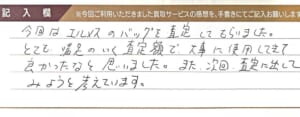 記入欄 ※今回ご利用いただきました買取サービスの感想を、手書きにてご記入お願いします
今回はエルメスのバッグを査定してもらいました。
とても満足のいく査定額で大事に使用してきて
良かったなと思いました。また、次回、査定に出して
みようと考えています。